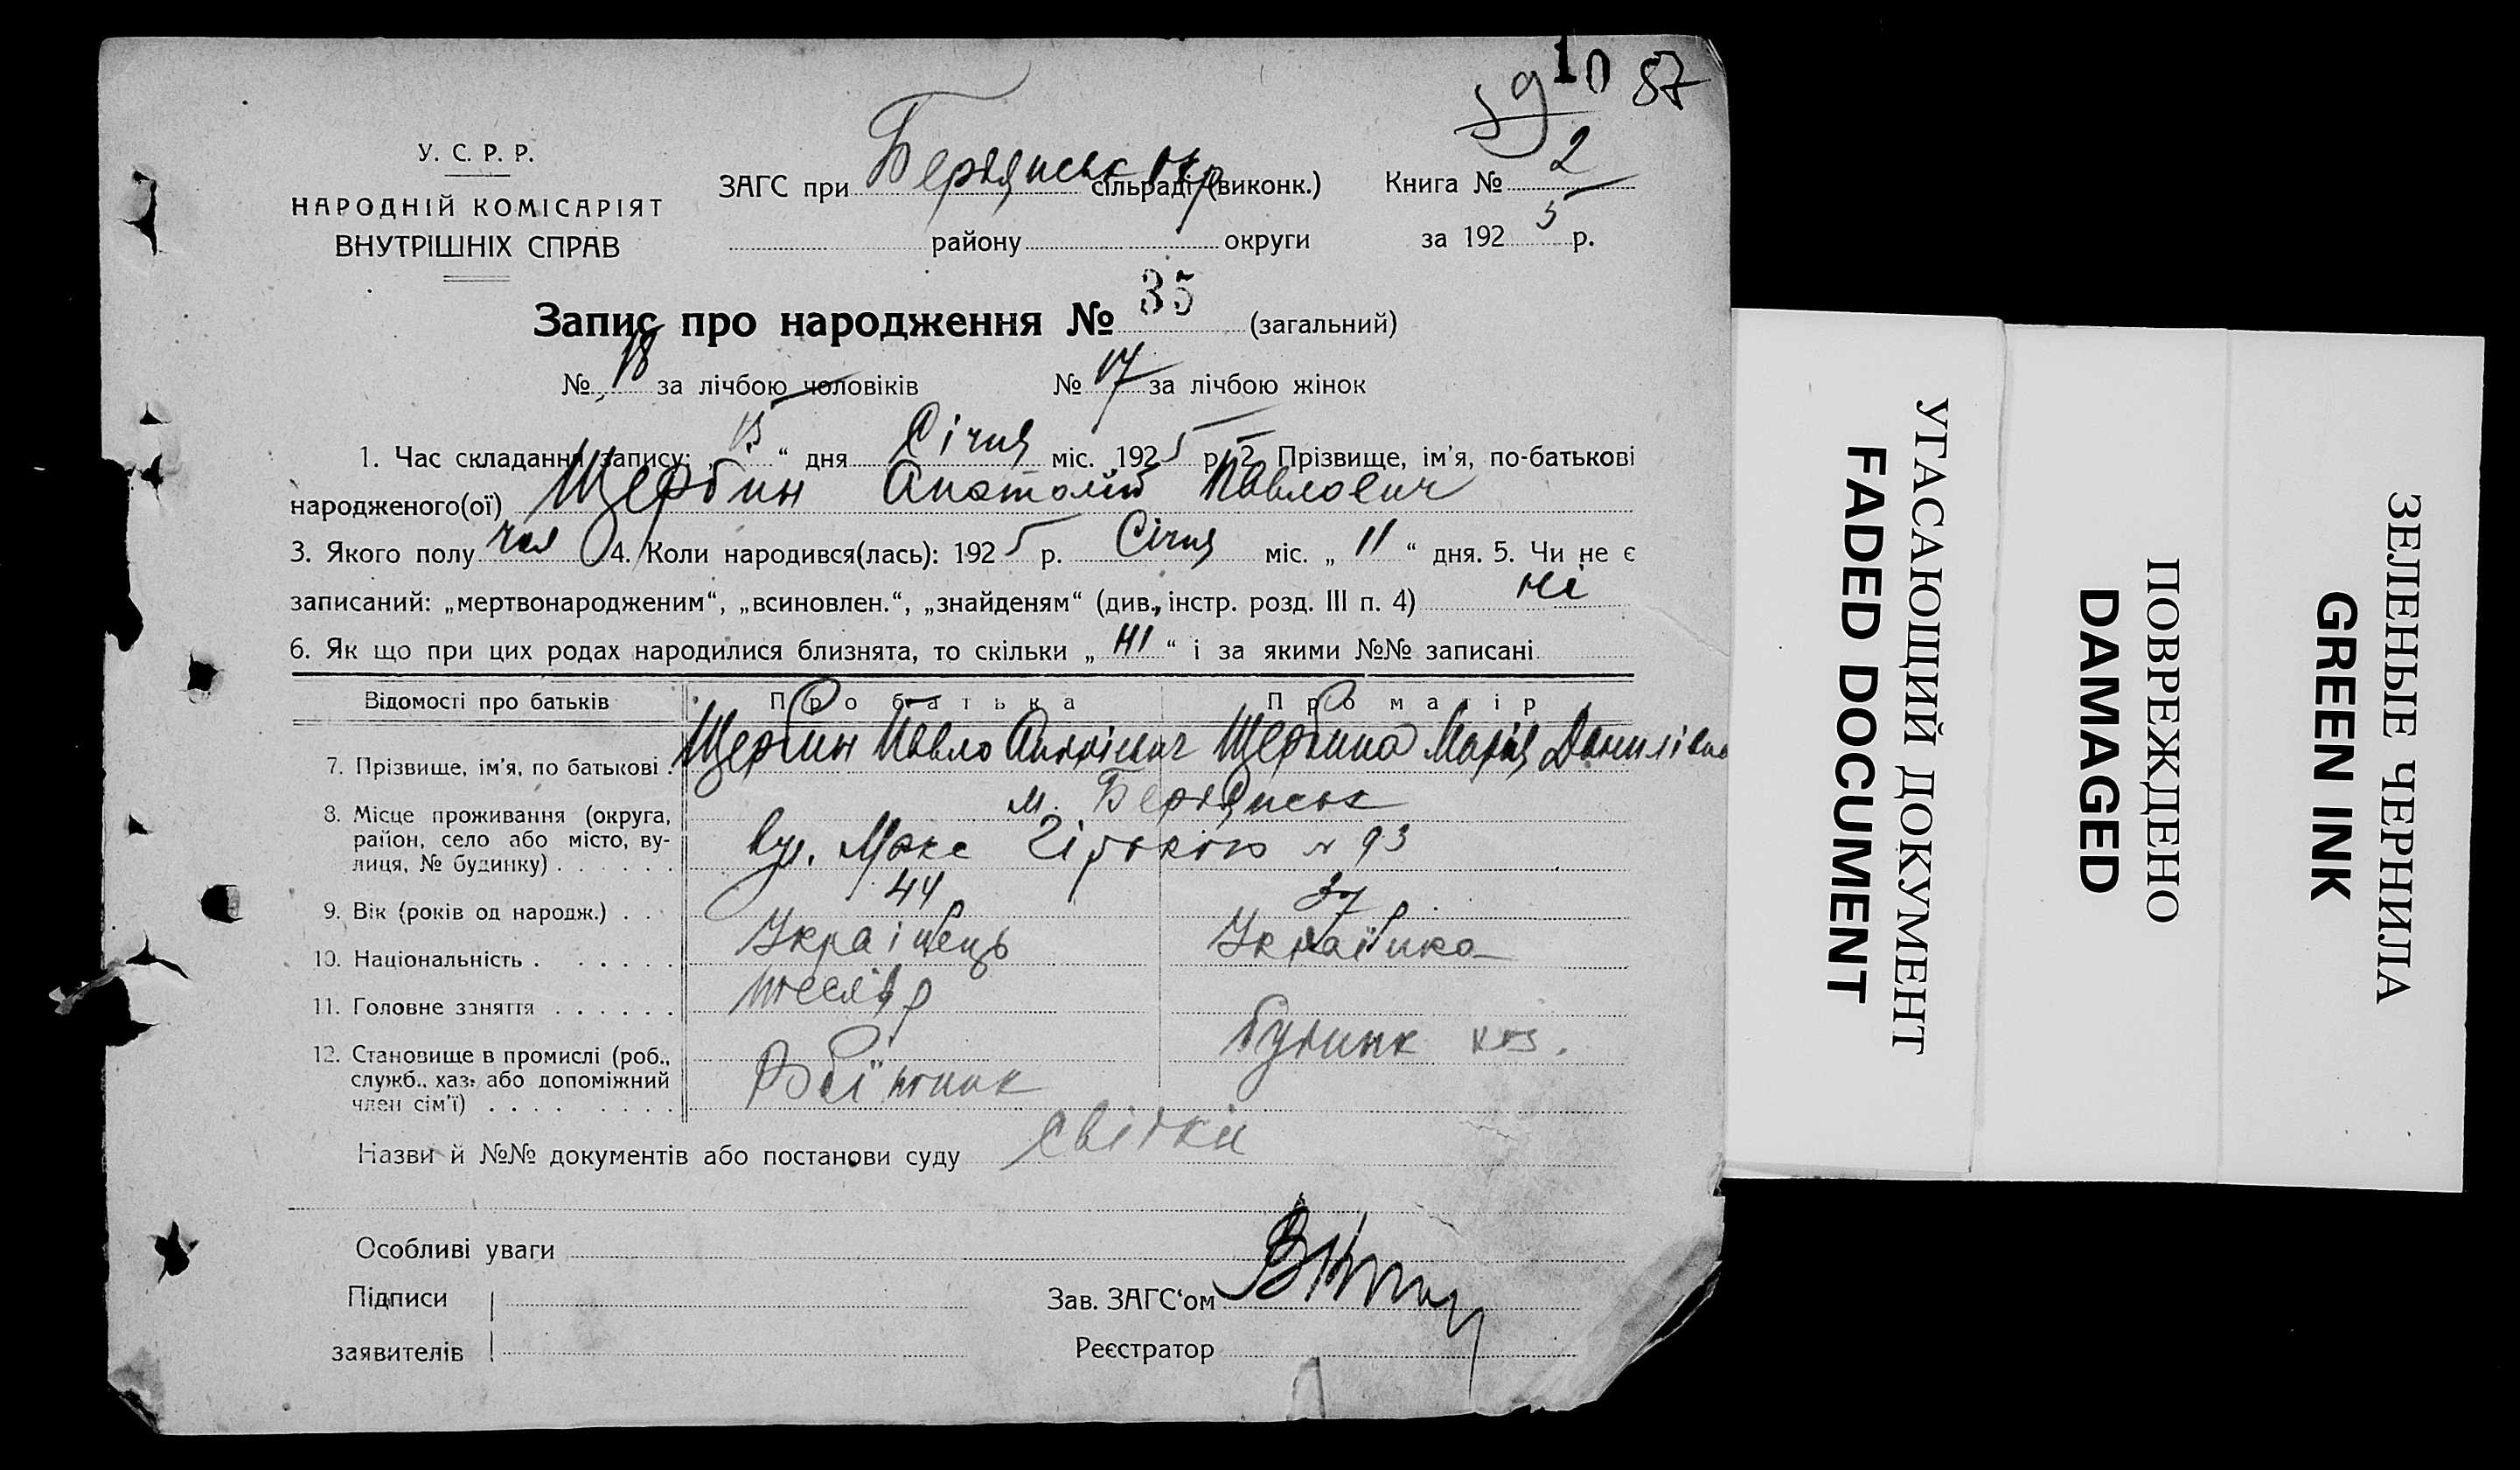 10 57
39
У. С. Р. Р.
НАРОДНІЙ КОМІСАРІЯТ
ВНУТРІШНІХ СПРАВ
ЗАГС при Бердянськ Окр сільраді (виконк.) Книга № 2
району округи за 1925 р.
Запис про народження № 35 (загальний)
№ 18 за лічбою чоловіків № 17 за лічбою жінок
1. Час складання запису: „ 13 “ дня Січня міс. 1925 р. 2. Прізвище, ім'я, по-батькові
народженого(ої) Щербин Анатолій Павлович
3. Якого полу чол 4. Коли народився(лась): 1925 р. Січня міс. „ 11 “ дня. 5. Чи не є
записаний: „мертвонародженим“, „всиновлен.“, „знайденям“ (див., інстр. розд. III п. 4) ні
6. Як що при цих родах народилися близнята, то скільки „ ні “ і за якими №№ записані
Відомості про батьків Про батька Про матір
7. Прізвище, ім'я, по батькові . Щербин Павло Щербина Марія Данилівна
8. Місце проживання (округа, район, село або місто, ву-лиця, № будинку) . . . . . . м. Бердянськ
вул. № 93
9. Вік (років од народж.) . . 44 37
10. Національність . . . . . . Українець Українка
11. Головне заняття . . . . . . тесляр
12. Становище в промислі (роб., служб., хаз. або допоміжний член сім'ї) . . . . . . . . Робітник
Назви й №№ документів або постанови суду свідки
Особливі уваги
Підписи
заявителів
Зав. ЗАГС‘ом
Реєстратор
УГАСАЮЩИЙ ДОКУМЕНТ
FADED DOCUMENT
ПОВРЕЖДЕНО
DAMAGED
ЗЕЛЕНЫЕ ЧЕРНИЛА
GREEN INK